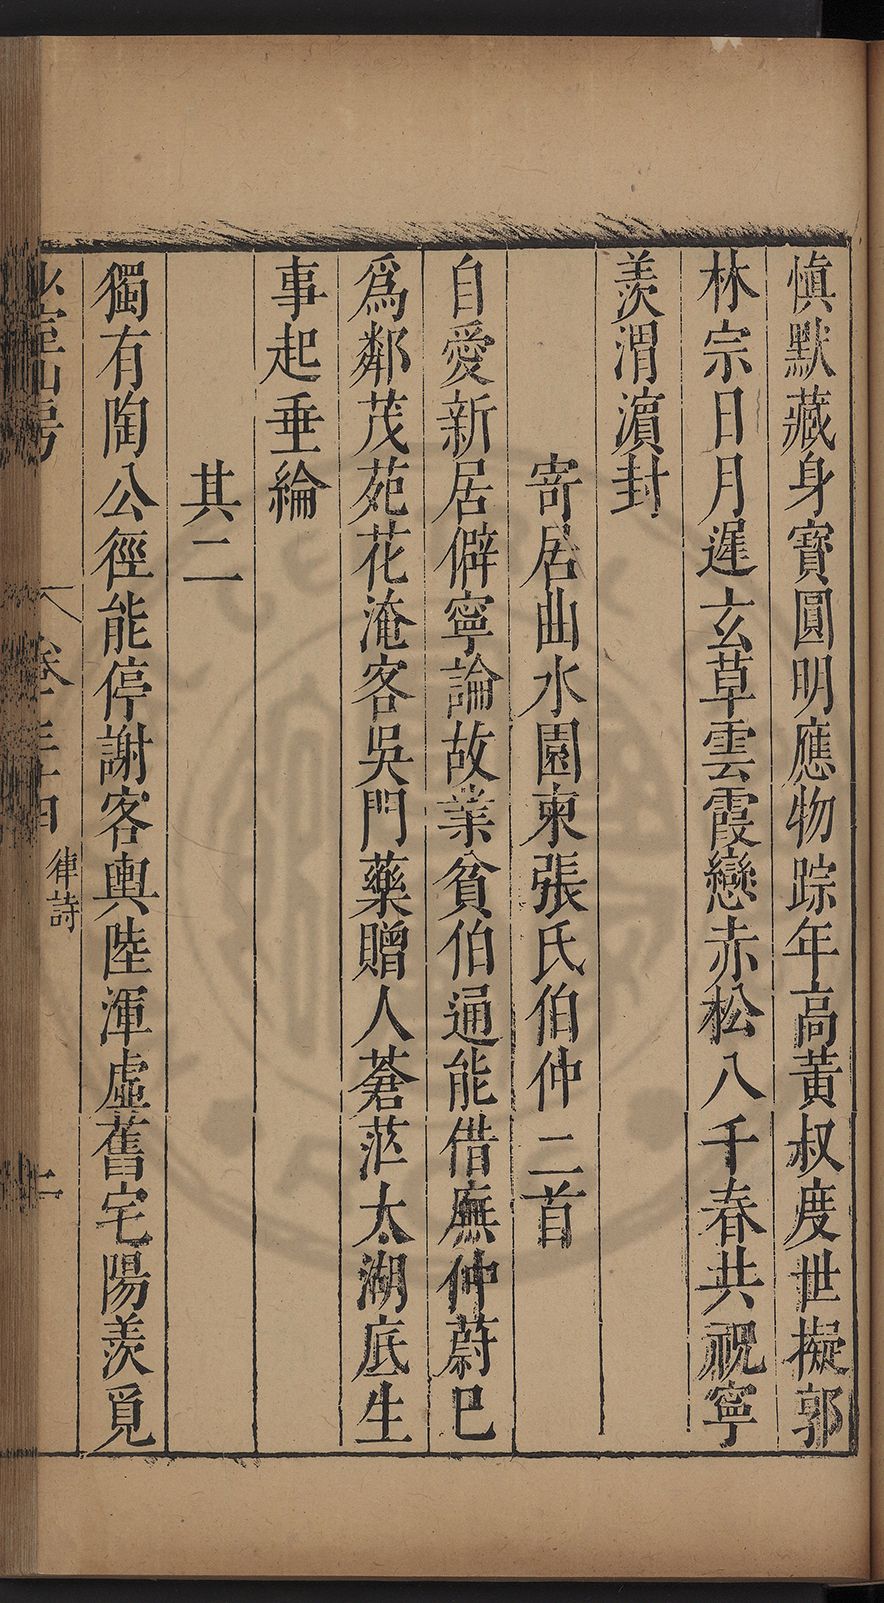 慎默藏身寶圓明應物踪年高黃叔度世擬郭
林宗日月遲玄草雲霞戀赤松八千春共祝寧
羨渭濵封
寄居曲水園柬張氏伯仲二首
自愛新居僻寧論故業貧伯通能借廡仲蔚巳
爲鄰茂苑花淹客吳門藥贈人蒼茫太湖底生
事起垂綸
其二
獨有陶公徑能停謝客輿陸渾虛舊宅陽羨覓
山房
卷 十四 律詩